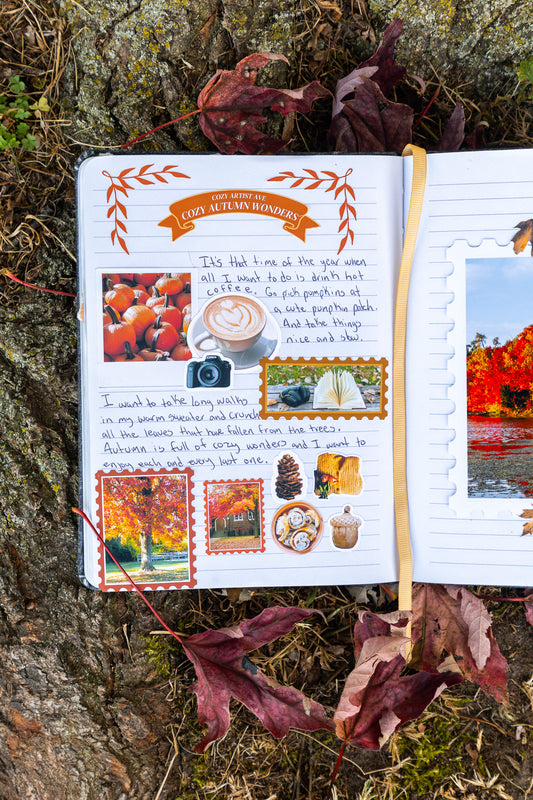 COZY ARTIST AVE
COZY AUTUMN WONDERS
It's that time of the year when
all I want to do is drink hot
coffee. Go pick pumpkins at
a cute pumpkin patch.
And take things
nice and slow.
I want to take long walks
in my warm sweater and crunch
all the leaves that have fallen from the trees.
Autumn is full of cozy wonders and I want to
enjoy each and every last one.